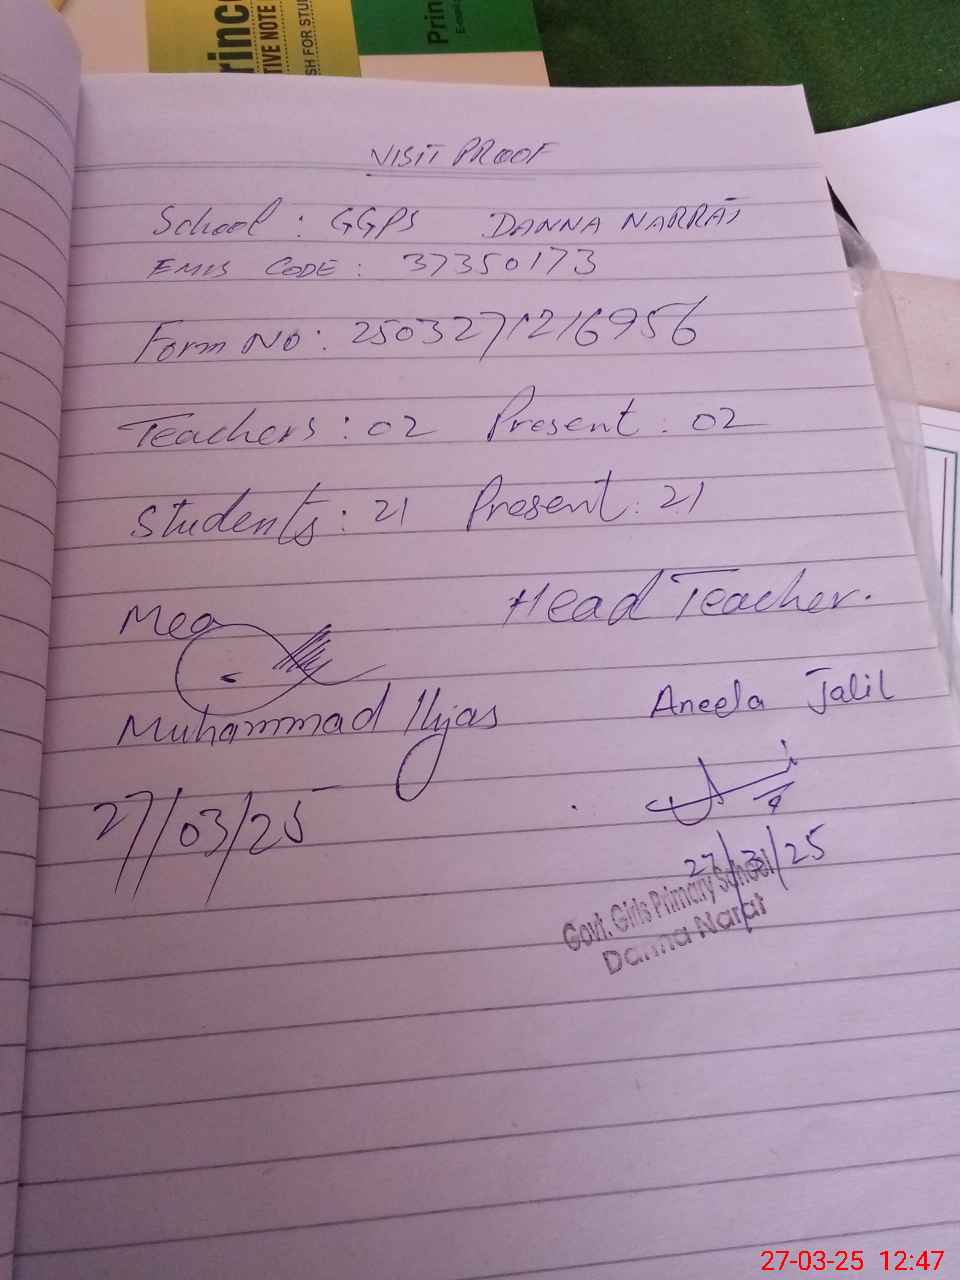 rinc
TIVE NOTE
SH FOR STU
Prin
VISIT PROOF
School : GGPS DANNA NARRAT
EMIS CODE : 37350173
Form No : 2503271216956
Teachers : 02 Present : 02
Students : 21 Present : 21
Mea Head Teacher.
Muhammad Ilyas Aneela Jalil
27/03/25
27/3/25
Govt. Girls Primary School
Danna Narat
27-03-25 12:47